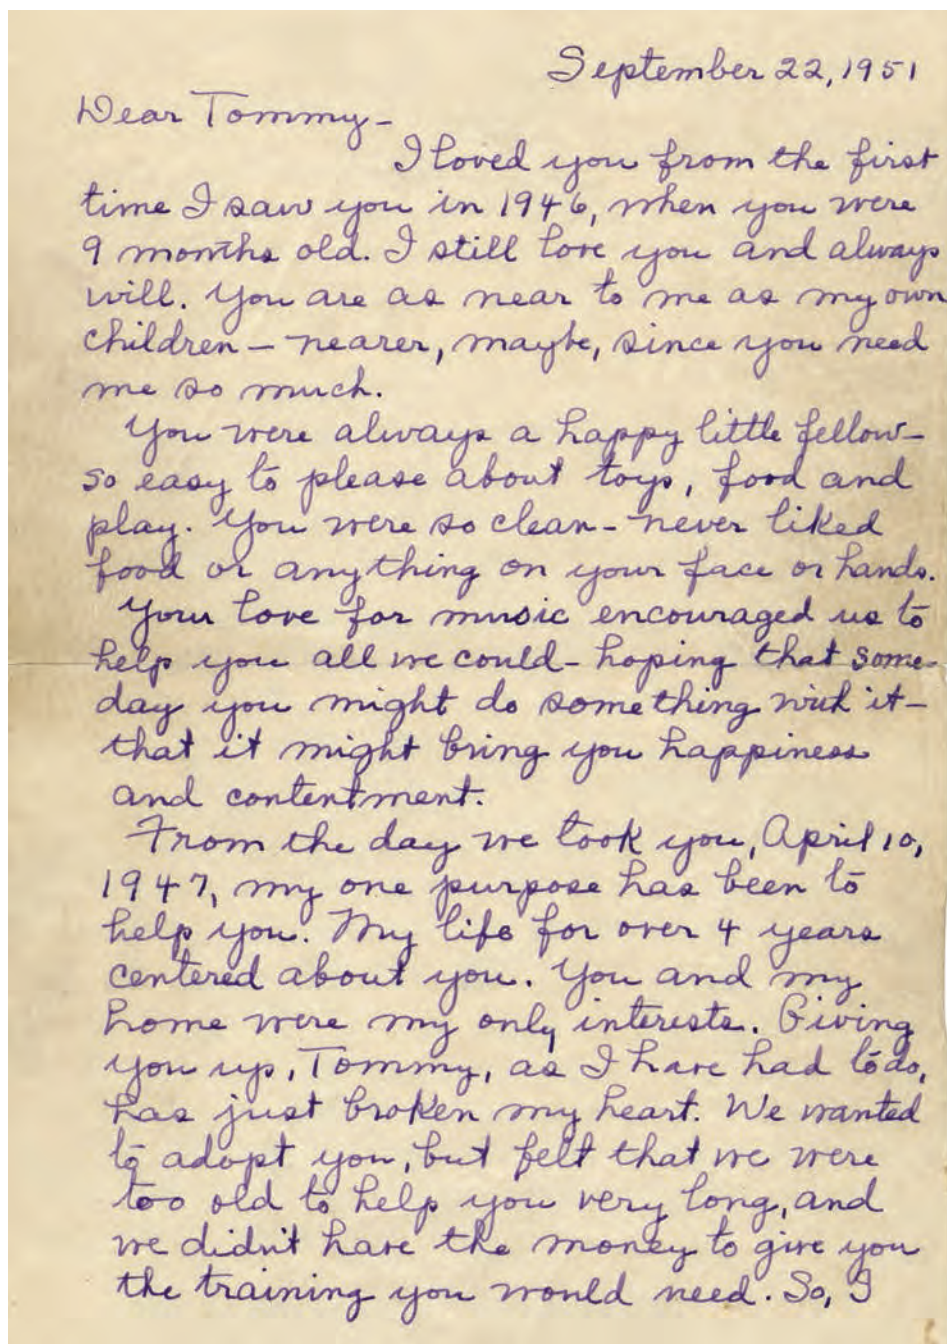 September 22, 1951
Dear Tommy-
I loved you from the first
time I saw you in 1946, when you were
9 months old. I still love you and always
will. You are as near to me as my own
children - nearer, maybe, since you need
me so much.
You were always a happy little fellow-
so easy to please about toys, food and
play. You were so clean - never liked
food or anything on your face or hands.
Your love for music encouraged us to
help you all we could - hoping that some-
day you might do something with it-
that it might bring you happiness
and contentment.
From the day we took you, April 10,
1947, my one purpose has been to
help you. My life for over 4 years
centered about you. You and my
home were my only interests. Giving
you up, Tommy, as I have had to do,
has just broken my heart. We wanted
to adopt you, but felt that we were
too old to help you very long, and
we didn't have the money to give you
the training you would need. So, I